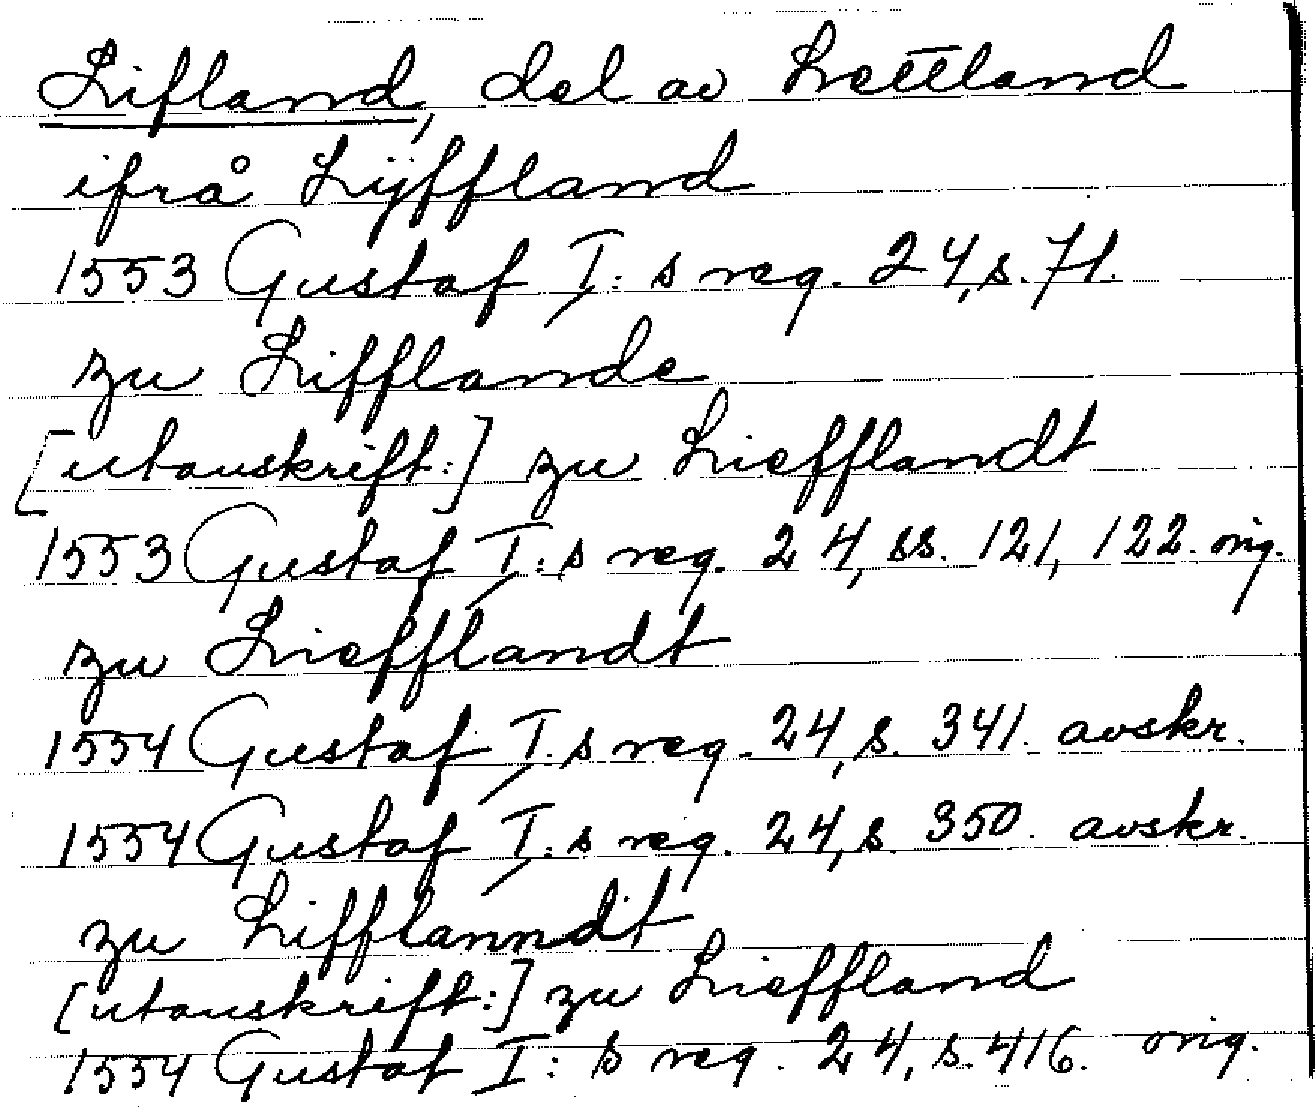 Lifland, del av Lettland
ifrå Lÿffland
1553 Gustaf I:s reg. 24, s. 71.
zu Lifflande
[utanskrift:] zu Liefflandt
1553 Gustaf I:s reg. 24, ss. 121, 122. orig.
zu Liefflandt
1554 Gustaf I:s reg. 24, s. 341. avskr.
1554 Gustaf I:s reg. 24, s. 350. avskr.
zu Lifflanndt
[utanskrift:] zu Lieffland
1554 Gustaf I:s reg. 24, s. 416. orig.